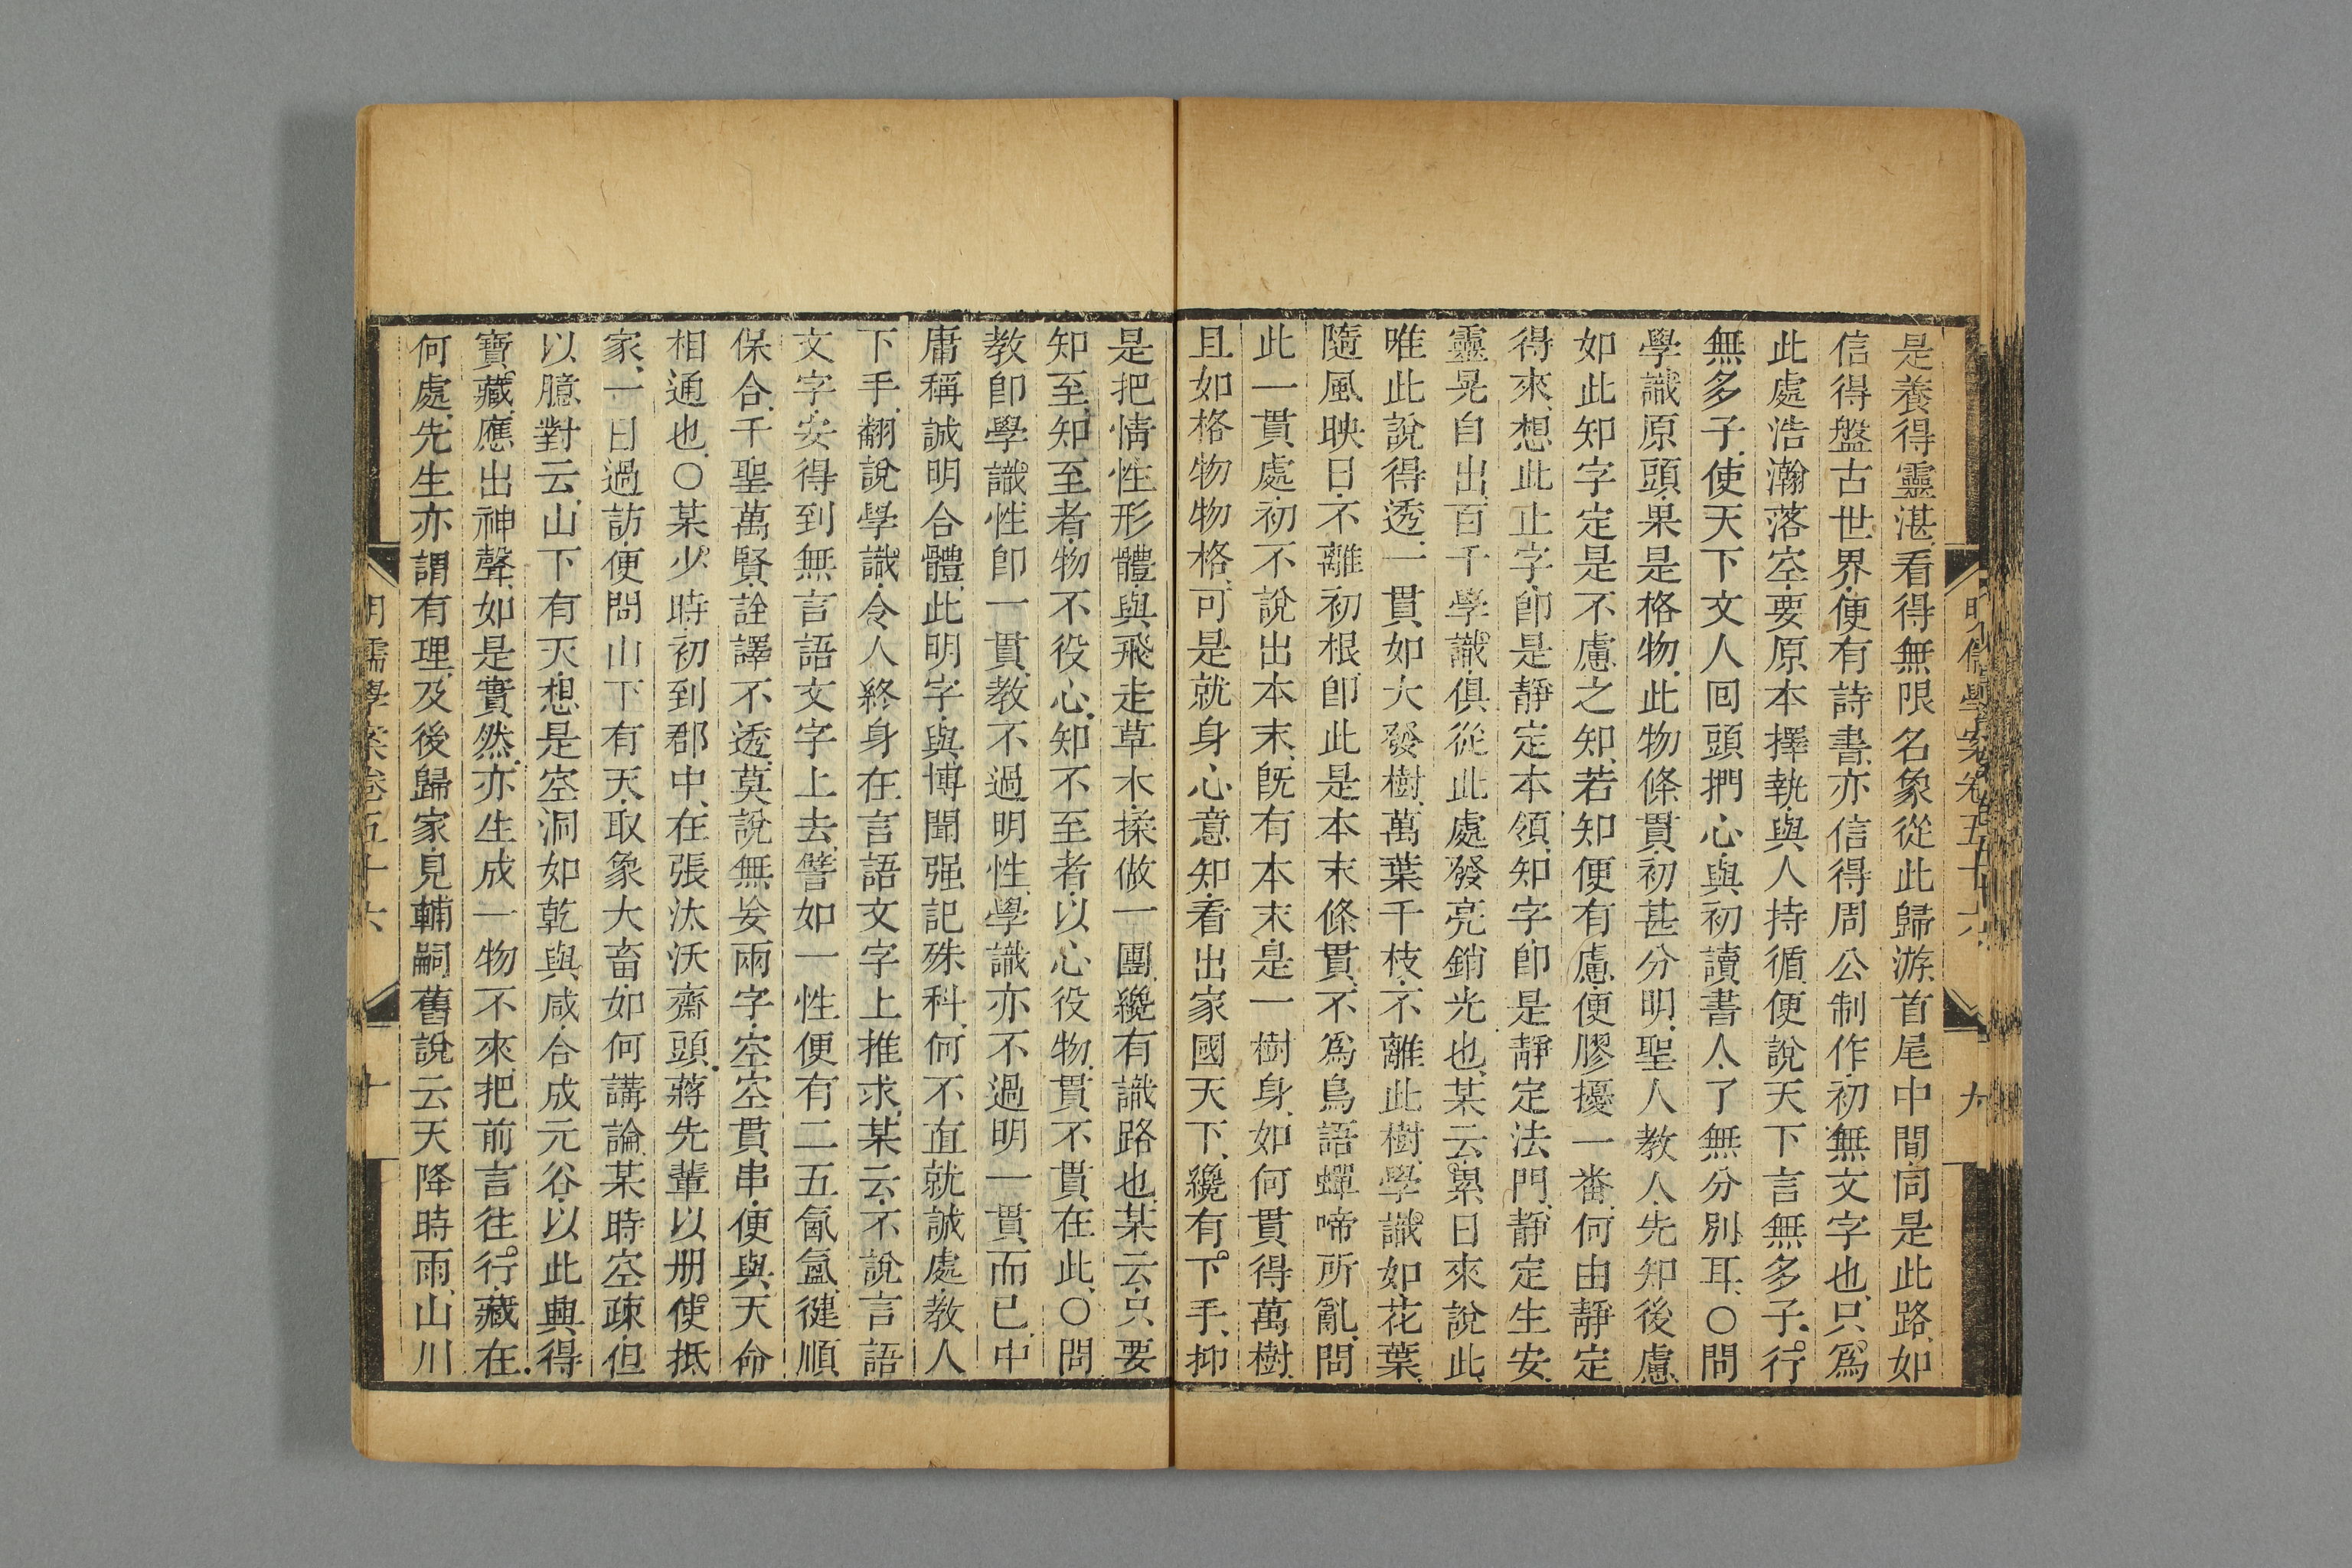 是養得靈湛、看得無限名象從此歸游、首尾中間、同是此路、如
信得盤古世界、便有詩書、亦信得周公制作、初無文字也、只爲
此處浩瀚落空、要原本擇執、與人持循、便說天下言無多子、行
無多子、使天下文人回頭捫心、與初讀書人、了無分別耳、○問
學識原頭、果是格物、此物條貫、初甚分明、聖人教人、先知後慮、
如此知字定是不慮之知、若知便有慮、便膠擾一番、何由靜定
得來、想此止字、卽是靜定本領、知字卽是靜定法門、靜定生安、
靈晃自出、百千學識、俱從此處發亮銷光也、某云、累日來說此、
唯此說得透、一貫如大發樹、萬葉千枝、不離此樹、學識如花葉、
隨風映日、不離初根、卽此是本末條貫、不爲鳥語蟬啼所亂、問
此一貫處、初不說出本末、旣有本末、是一樹身、如何貫得萬樹、
且如格物物格、可是就身心意知、看出家國天下、纔有下手、抑
是把情性形體、與飛走草木、揉做一團、纔有識路也、某云、只要
知至、知至者、物不役心、知不至者、以心役物、貫不貫在此、○問
教卽學識、性卽一貫、教不過明性、學識亦不過明一貫而已、中
庸稱誠明合體、此明字、與博聞强記殊科、何不直就誠處、教人
下手、翻說學識、令人終身在言語文字上推求、某云、不說言語
文字、安得到無言語文字上去、譬如一性便有二五氤氳、健順
保合、千聖萬賢、詮譯不透、莫說無妄兩字、空空貫串、便與天命
相通也、○某少時初到郡中、在張汰沃齋頭、蔣先輩以册使抵
家、一日過訪、便問山下有天、取象大畜、如何講論、某時空疎、但
以臆對云、山下有天、想是空洞如乾與咸、合成元谷、以此輿得
寶藏、應出神聲、如是實然、亦生成一物不來、把前言往行、藏在
何處、先生亦謂有理、及後歸家、見輔嗣舊說云天降時雨、山川
明儒學案卷五十六
九
明儒學案卷五十六
十